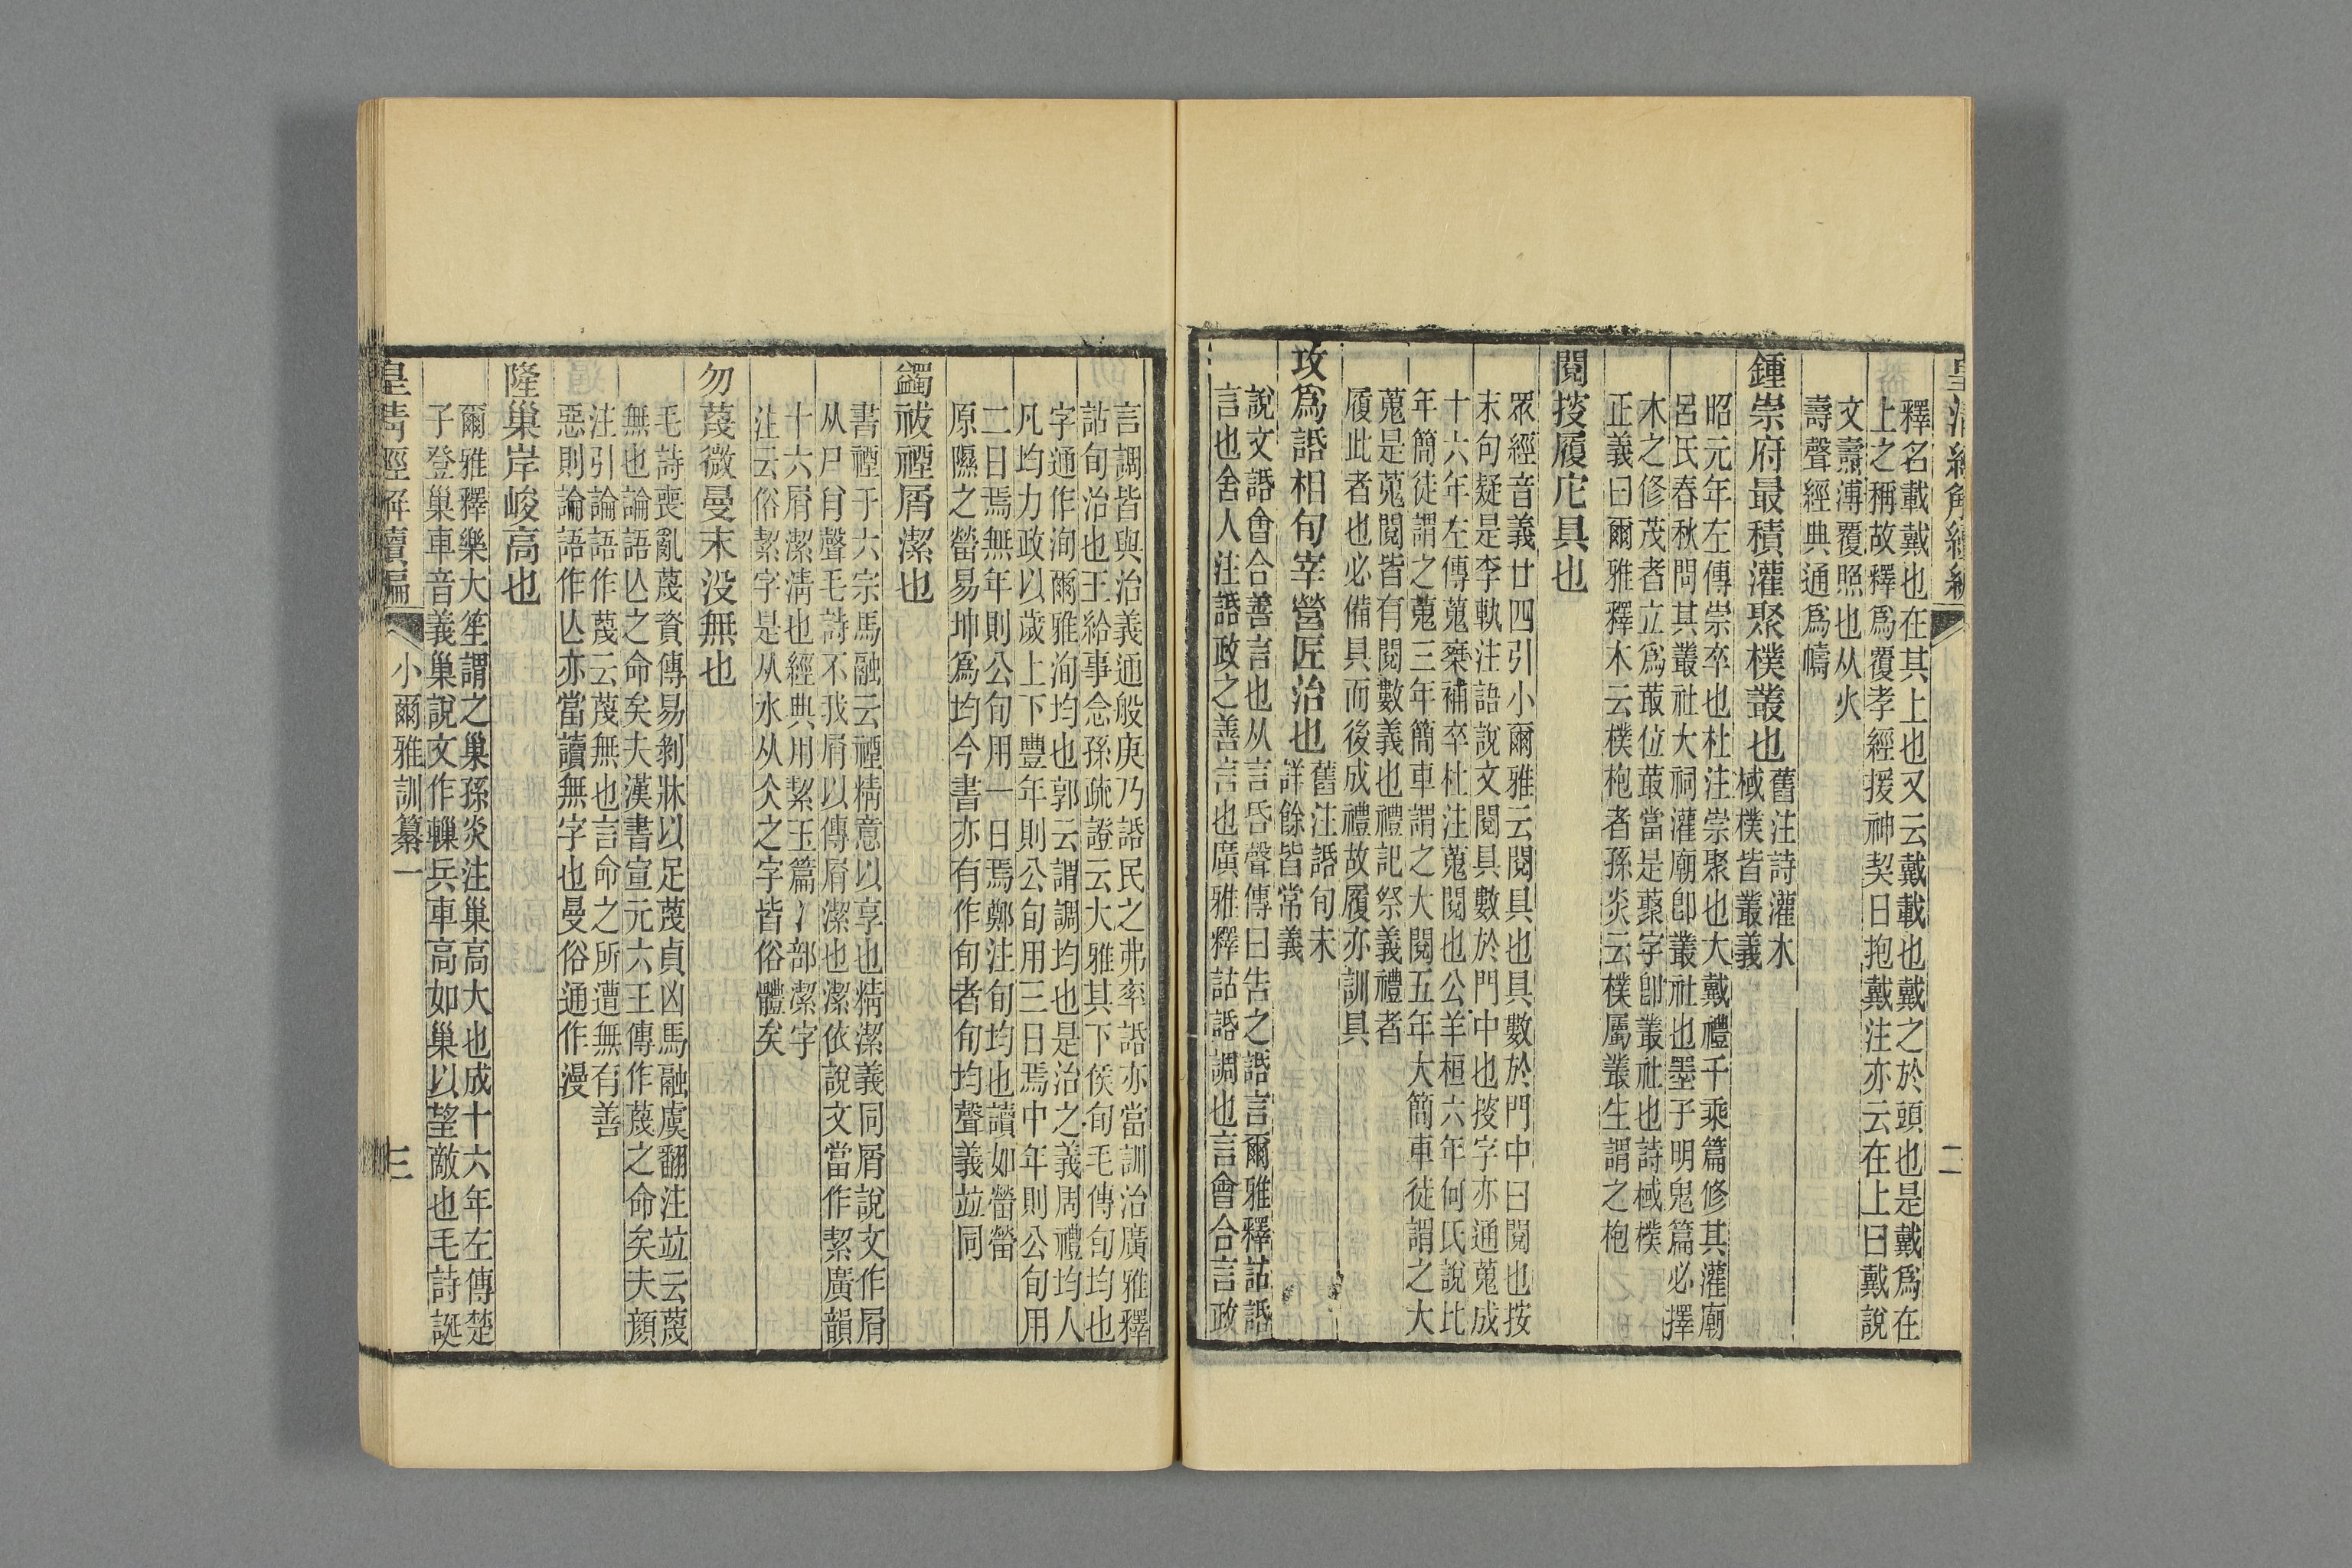 釋名載戴也在其上也又云戴載也戴之於頭也是戴爲在
上之稱故釋爲覆孝經援神契曰抱戴注亦云在上曰戴說
文燾溥覆照也从火
壽聲經典通爲幬
鍾崇府最積灌聚樸叢也
舊注詩灌木
棫樸皆叢義
昭元年左傳崇卒也杜注崇聚也大戴禮千乘篇修其灌廟
呂氏春秋問其叢社大祠灌廟卽叢社也墨子明鬼篇必擇
木之修茂者立爲菆位菆當是藂字卽叢社也詩棫樸
正義曰爾雅釋木云樸枹者孫炎云樸屬叢生謂之枹
閱搜履庀具也
眾經音義廿四引小爾雅云閱具也具數於門中曰閱也按
末句疑是李軌注語說文閱具數於門中也搜字亦通蒐成
十六年左傳蒐椉補卒杜注蒐閱也公羊桓六年何氏說比
年簡徒謂之蒐三年簡車謂之大閱五年大簡車徒謂之大
蒐是蒐閱皆有閱數義也禮記祭義禮者
履此者也必備具而後成禮故履亦訓具
攻爲䛡相旬宰營匠治也
舊注䛡旬未
詳餘皆常義
說文䛡會合善言也从言昏聲傳曰告之䛡言爾雅釋詁䛡
言也舍人注䛡政之善言也廣雅釋詁䛡調也言會合言政
言調皆與治義通般庚乃䛡民之弗率䛡亦當訓治廣雅釋
詁旬治也王給事念孫疏證云大雅其下侯旬毛傳旬均也
字通作洵爾雅洵均也郭云謂調均也是治之義周禮均人
凡均力政以歲上下豐年則公旬用三日焉中年則公旬用
二日焉無年則公旬用一日焉鄭注旬均也讀如䇯䇯
原隰之䇯易坤爲均今書亦有作旬者旬均聲義竝同
蠲祓禋屑潔也
書禋于六宗馬融云禋精意以享也精潔義同屑說文作屑
从尸㕧聲毛詩不我屑以傳屑潔也潔依說文當作絜廣韻
十六屑潔淸也經典用絜玉篇冫部潔字
注云俗絜字是从水从仌之字皆俗體矣
勿蔑微曼末没無也
毛詩喪亂蔑資傳易剝牀以足蔑貞凶馬融虞翻注竝云蔑
無也論語亾之命矣夫漢書宣元六王傳作蔑之命矣夫顏
注引論語作蔑云蔑無也言命之所遭無有善
惡則論語作亾亦當讀無字也曼俗通作漫
隆巢岸峻高也
爾雅釋樂大笙謂之巢孫炎注巢高大也成十六年左傳楚
子登巢車音義巢說文作轈兵車高如巢以望敵也毛詩誕
皇淸經解續編
小爾雅訓纂一
三